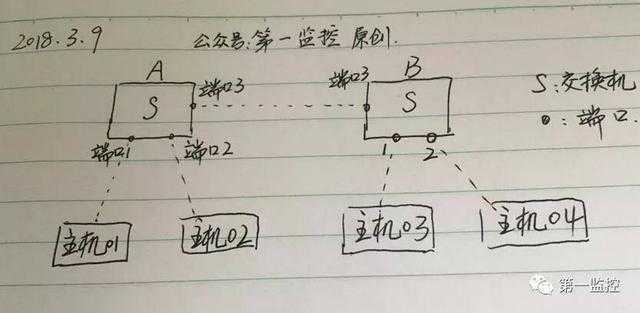 2018.3.9 公众号:第一监控 原创.
A
B
端口3
端口3
S
S
S:交换机
o:端口.
端口1
端口2
1
2
主机01
主机02
主机03
主机04
第一监控